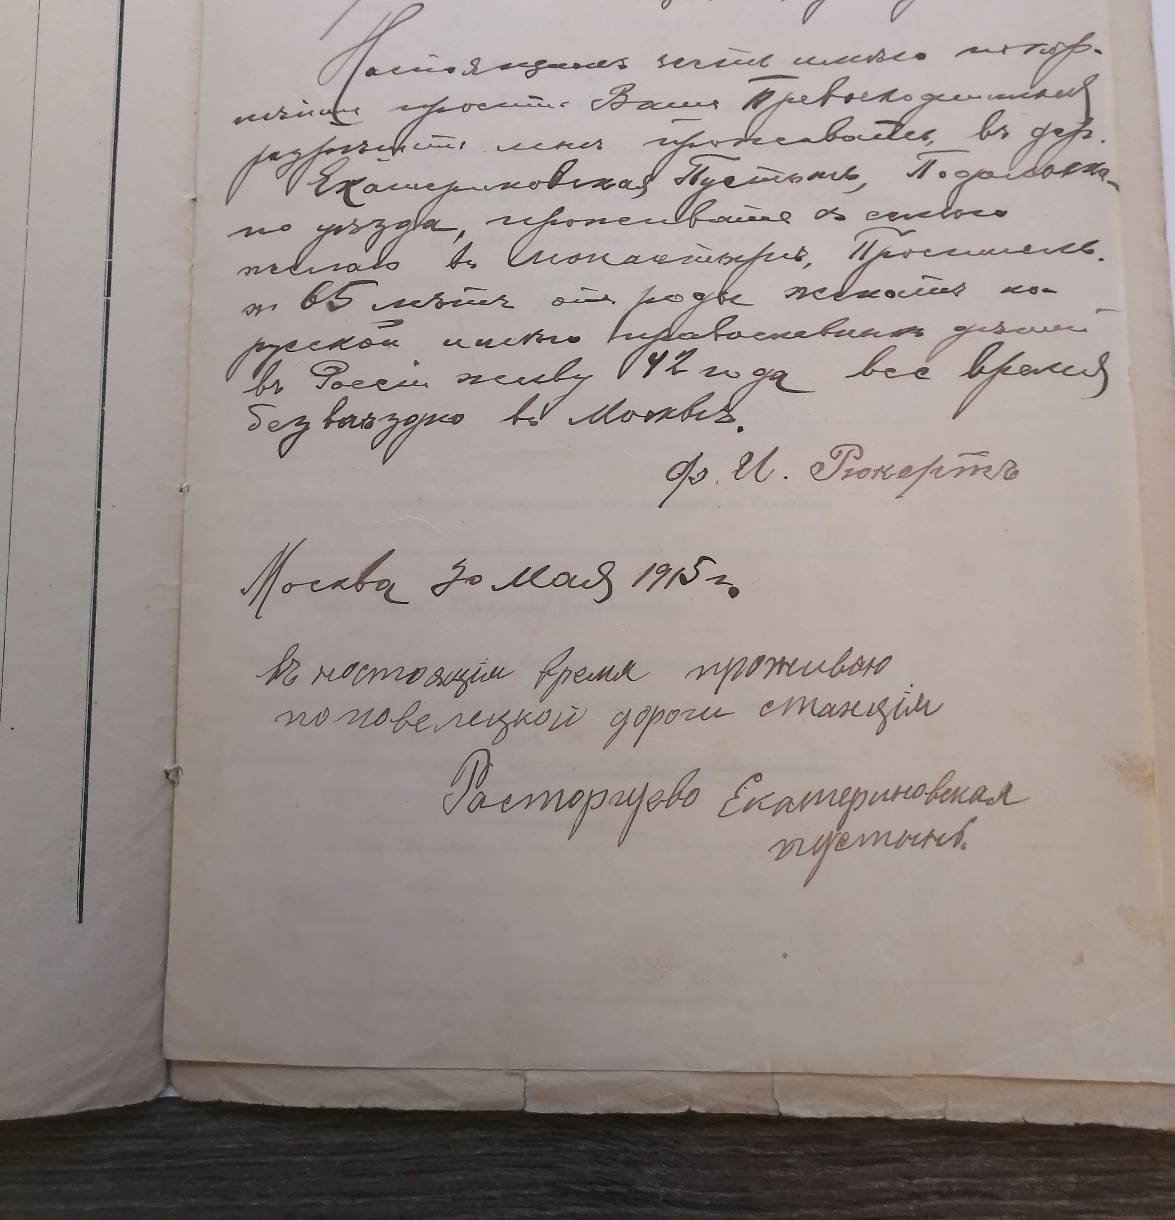 Настоящимъ честь имѣю покор-
нѣйше просить Ваше Превосходительства
разрѣшить мнѣ проживать, въ дер.
Екатериновская Пустынь, Подольска-
го уѣзда, проживать съ семьею
желаю въ монастырѣ, Проситель.
65 лѣтъ отъ роды женатъ на
русской имѣю православныхъ дѣтей
въ Россіи живу 42 года все время
безвыѣздно въ Москвѣ.
Ф. И. Рюкертъ
Москва 30 Мая 1915 г.
въ ностоящім время проживаю
по повелецкой дороги станціи
Расторгуево Екатериновская
пустынь.